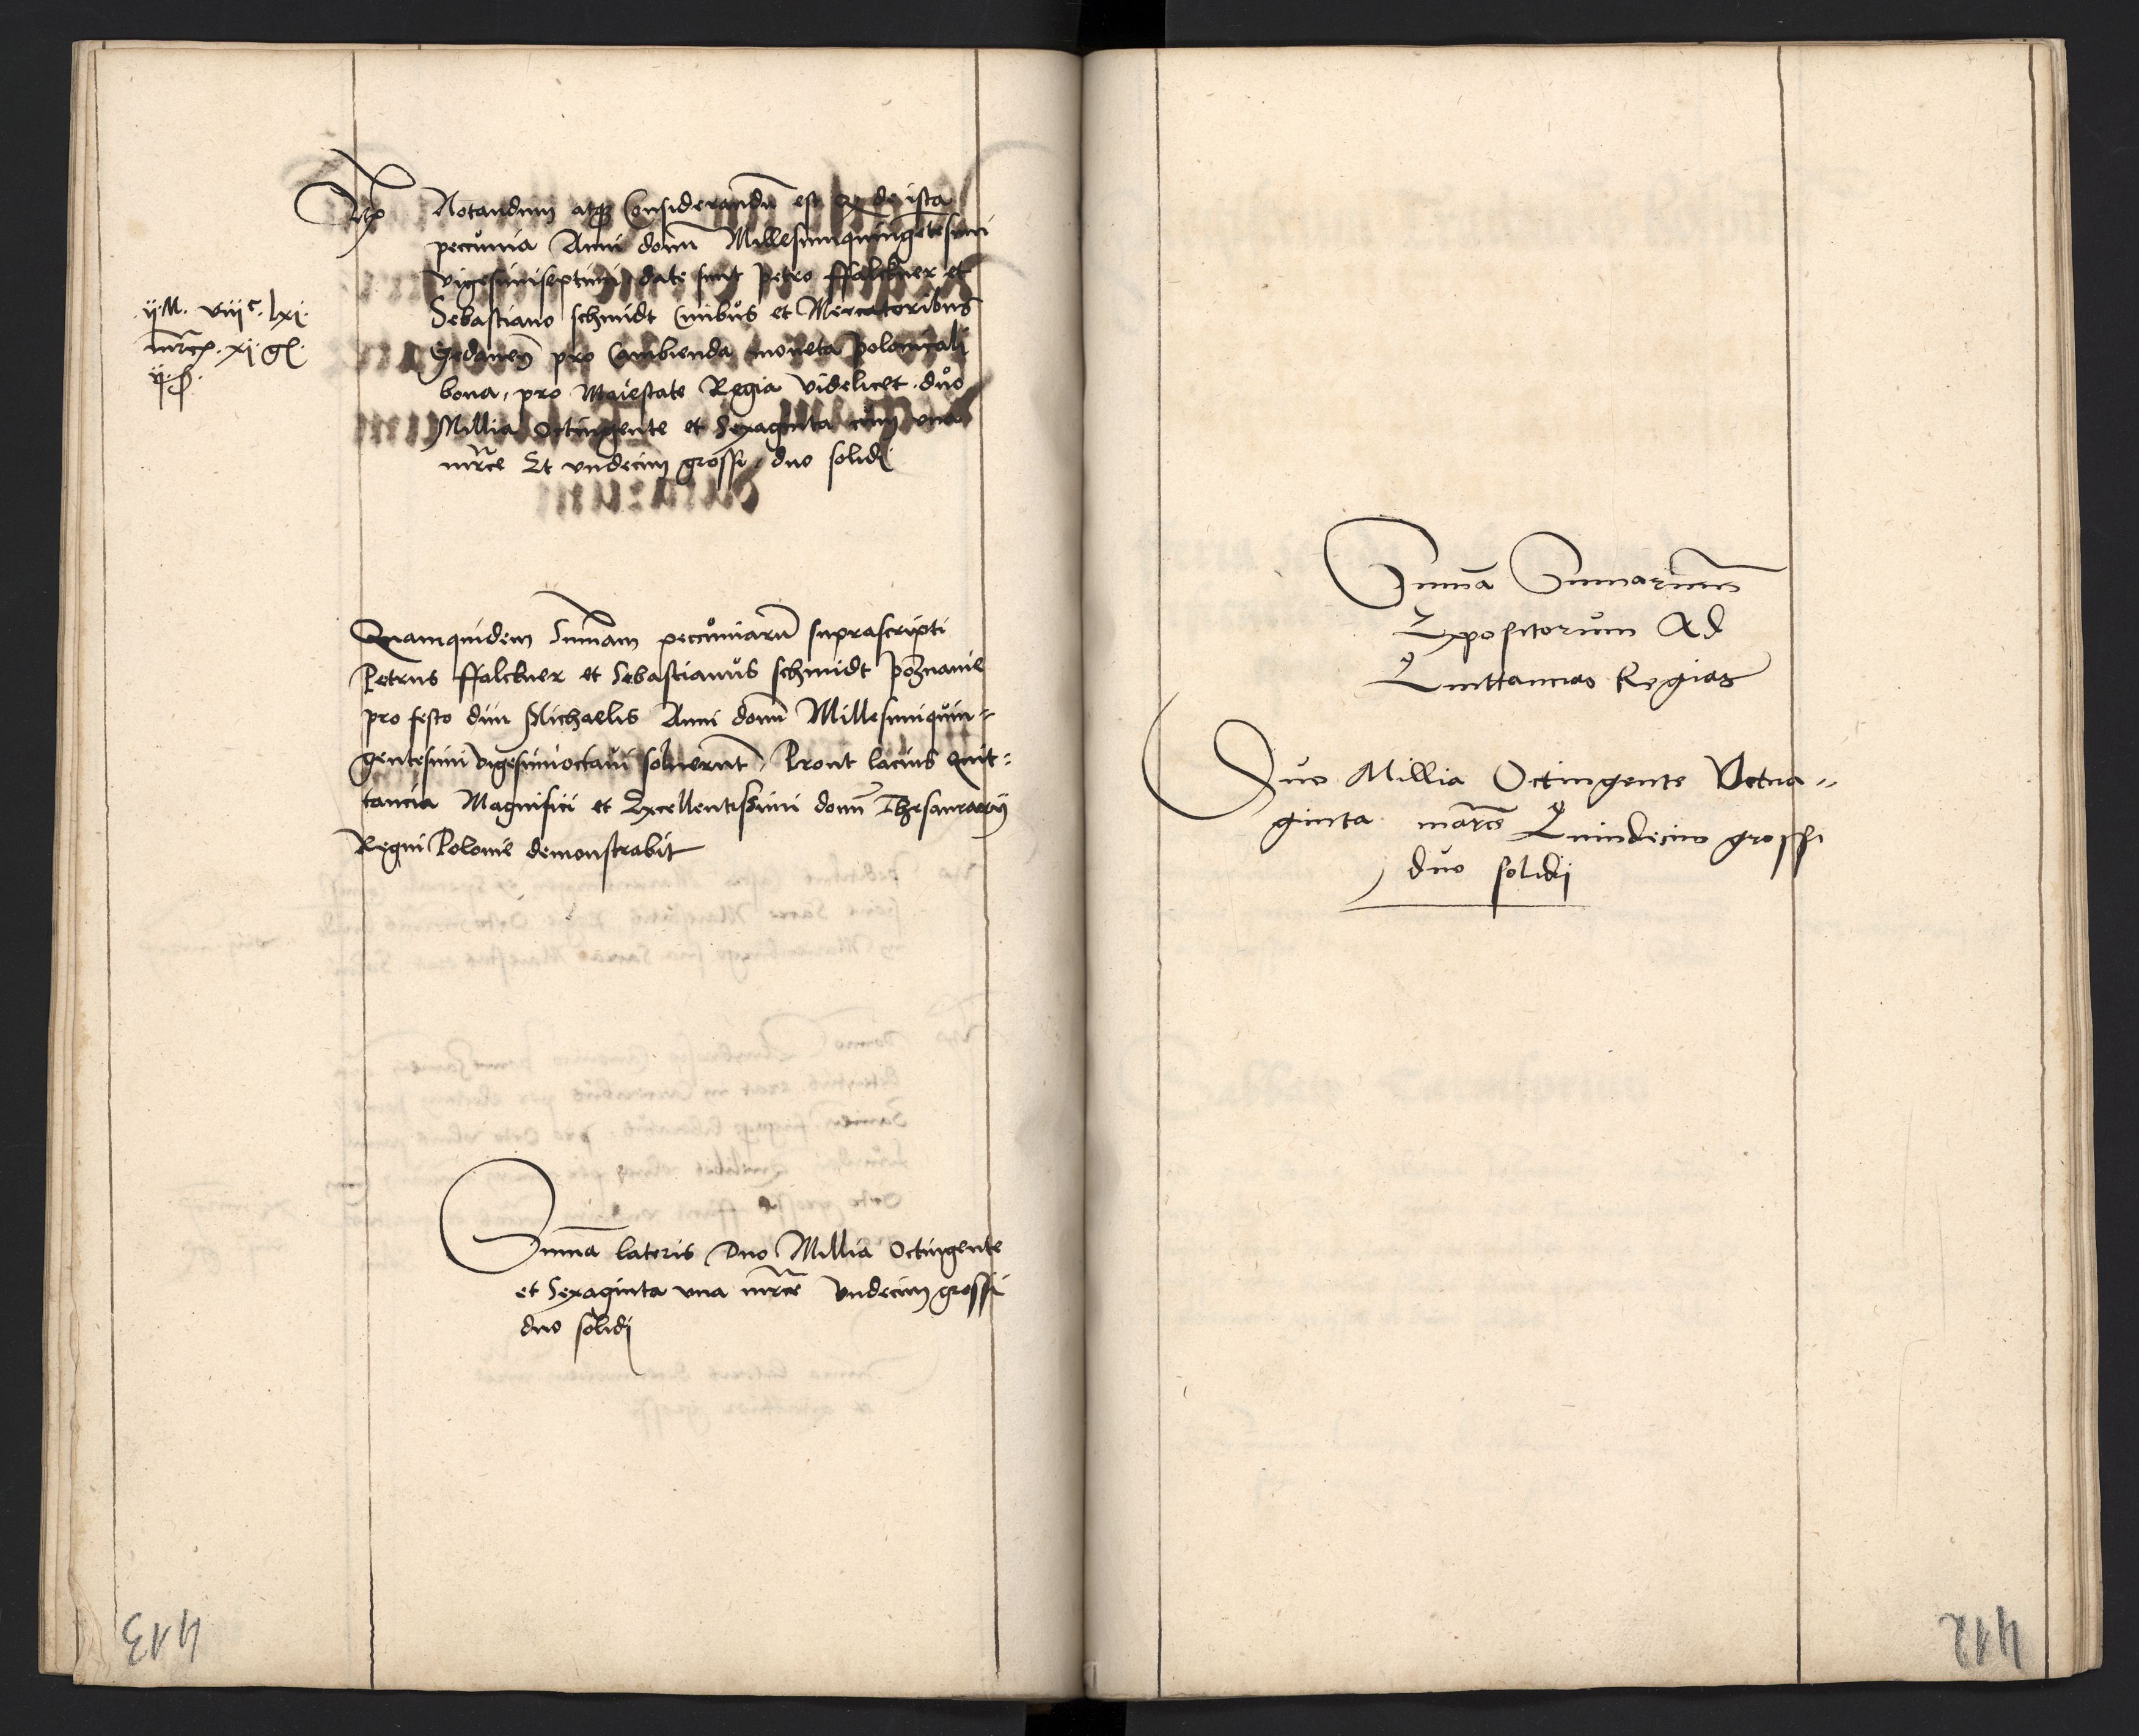 Itẽ Notandum atqз Considerandũ est Qr de ista
peccunia Anni domĩ Millesimiquingẽtesimi
vigesimiseptimi date sunt Petro ffalckner et
ij M. viijᶜ. lxi.
mrcẽ. xi. gſ.
ij. ß.
Sebastiano schmidt Ciuibus et Mercatoribus
Gedaneñ pro Cambienda moneta polonicali
bona, pro Maiestate Regia videlicet duo
Millia Octingente et Sexaginta cum vna
mrce Et vndecim grossi, duo solidi
Quamquidem Summam peccuniarũ suprascripti
Petrus ffalckner et Sebastianus schmidt Poznanie
pro festo diui Michaelis Anni domĩ Millesimiquin=
gentesimi vigesimioctaui soluerunt, Prout lacius Quit=
tancia Magnifici et Excellentissimi domĩ Thesaurarij
Regni Polonie demonstrabit
Summa lateris Duo Millia Octingente
et Sexaginta vna mrce vndecim grossi
duo solidi
413
Summa Summarum
Expositorum Ad
Quittancias Regias
Duo Millia Octingente Octua=
ginta marce Quindecim grossi
duo solidij
412